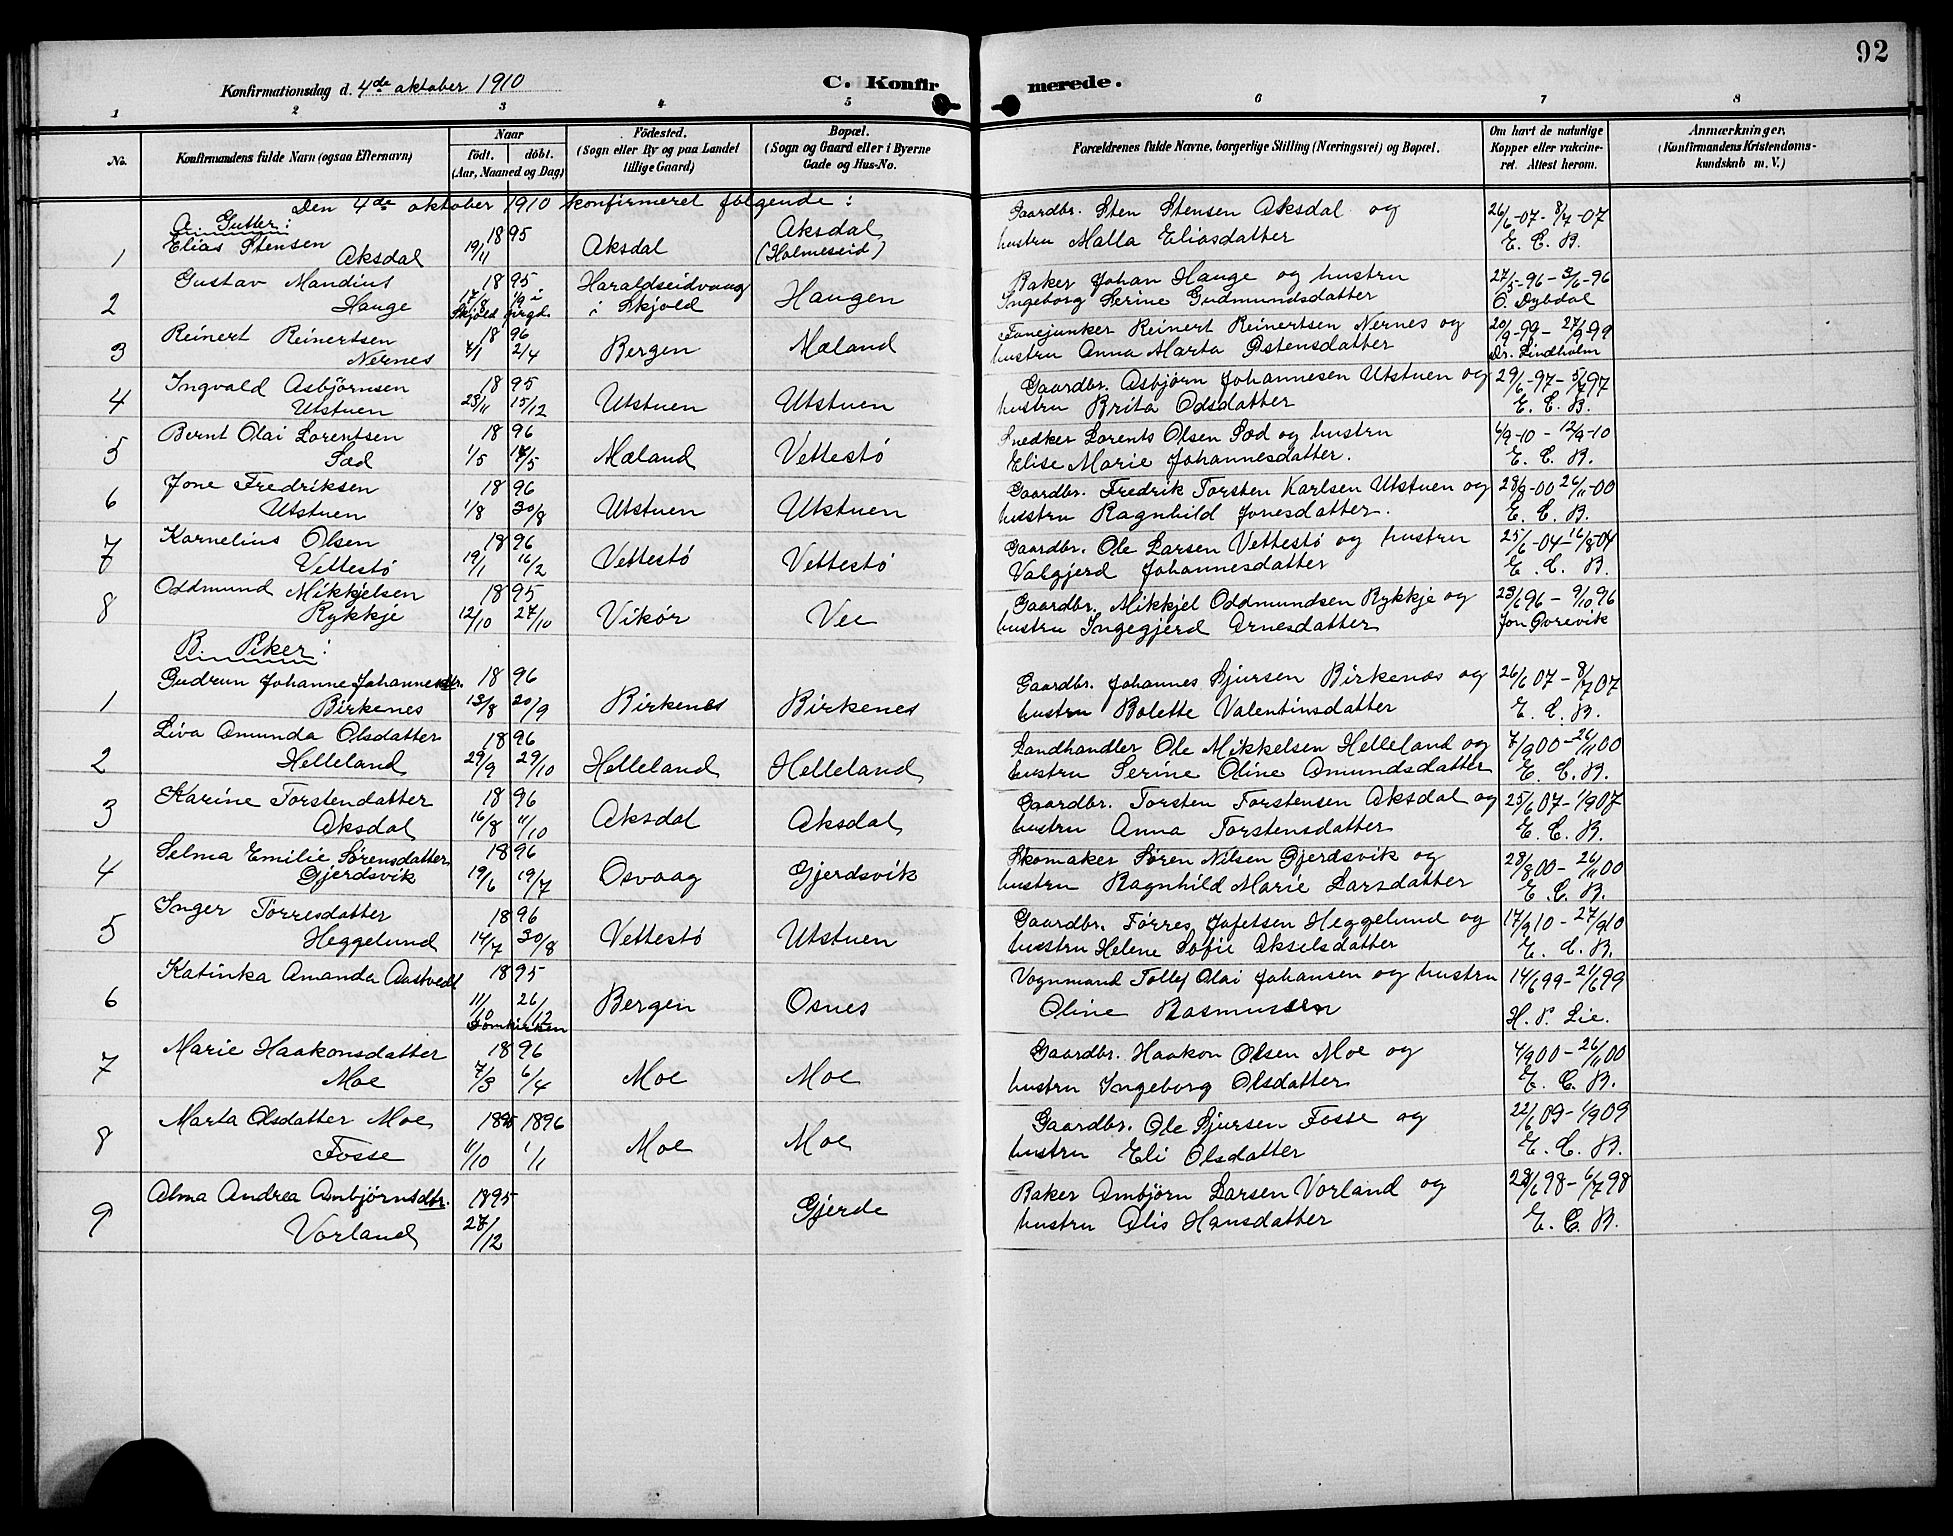 92
Konfirmationsdag d. 4de oktober 1910
C. Konfirmerede.
1 2 3 4 5 6 7 8
No.
Konfirmandens fulde Narn (ogsaa Efternavn)
Naar
födt. döbt.
(Aar, Maaned og Dag)
Födested.
(Sogn eller By og paa Landet
tillige Gaard)
Bopæl.
(Sogn og Gaard eller i Byerne
Gade og Hus-No.
Forældrenes fulde Navne, borgerlige Stilling (Næringsvei) og Bopæl.
Om havt de naturlige
Kopper eller vakcineret. Attest herom.
Anmærkninger,
(Konfirmandens Kristendomskundskab m. V.)
Den 4de oktober 1910 konfirmeret følgende:
A. Gutter:
1 Elias Stensen 1895 Aksdal Gaardbr. Sten Stensen Aksdal og 26/6-07 - 8/7-07
Aksdal 19/11 Aksdal (Holmeseid) hustru Malla Eliasdatter E. E. B.
2 Gustav Mandius 1895 Haraldseidvaag Haugen Baker Johan Hauge og hustru 27/5-96 - 3/6-96
Hauge 17/8 1/9 i i Skjold Ingeborg Serine Gudmundsdatter O. Dybdal
Skjold
3 Reinert Reinertsen 1896 Fanejunker Reinert Reinertsen Nernes og 20/9-99 - 27/9-99
Nernes 7/1 2/4 Bergen Mæland hustru Anna Marta Østensdatter Dr. Lindholm
4 Ingvald Asbjørnsen 1895 Gaardbr. Asbjørn Johannesen Utstuen og 29/6-97 - 5/7 97
Utstuen 23/11 15/12 Utstuen Utstuen hustru Brita Odsdatter E. E. B.
5 Bernt Olai Lorentsen 1896 Snedker Lorents Olsen Sæd og hustru 6/9-10 - 12/9-10
Sæd 1/5 Mæland Vettestö Elise Marie Johannesdatter. E. E. B.
6 Jone Fredriksen 1896 Gaardbr. Fredrik Torsten Karlsen Utstuen og 28/8-00 26/11-00
Utstuen 1/8 30/8 Utstuen Utstuen husstru Ragnhild Jonesdatter. E. E. B.
7 Kornelius Olsen 1896 Gaardbr. Ole Larsen Vettestö og hustru 25/6-04 - 16/8-04
Vettestö 19/1 16/2 Vettestö Vettestö Valgjerd Johannesdatter E. E. B.
8 Oddmund Mikkjelsen 1895 Gaardbr. Mikkjel Oddmundsen Rykkje og 23/6 96 - 9/10 96
Rykkje 12/10 27/10 Vikör Vee hustru Ingegjerd Arnesdatter
B. Piker:
1 Gudrun Johanne Johannesdtr. 1896 Gaardbr. Johannes Sjursen Birkenæs og 26/6 07 - 8/7 07
Birkenes 13/8 20/9 Birkenes Birkenes hustru Bolette Valentinsdatter E. E. B.
2 Liva Amunda Olsdatter 1896 Landhandler Ole Mikkelsen Helleland og 7/9 00 - 26/11 00
Helleland 29/9 29/10 Helleland Helleland hustru Serine Oline Amundsdatter E. E. B.
3 Karine Torstendatter 1896 Gaardbr. Torsten Torstensen Aksdal og 25/6 07 - 1/9 07
Aksdal 16/8 11/10 Aksdal Aksdal hustru Anna Torstensdatter E. E. B.
4 Selma Emilie Sørensdatter 1896 Skomaker Søren Nilsen Gjerdsvik og 28/8 00 - 26/11 00
Gjerdsvik 19/6 19/7 Osvaag Gjerdsvik hustru Ragnhild Marie Larsdatter E. E. B.
5 Inger Tørresdatter 1896 Gaardbr. Tørres Jafetsen Heggelund og 17/9 10 - 27/9 10
Heggelund 14/7 30/8 Vettestö Utstuen husstru Helene Sofie Akselsdatter E. E. B.
6 Katinka Amanda Aastvedt 1895 Vognmand Tollef Olai Johansen og hustru 14/6 99 - 21/6 99
11/10 26/12 Bergen Osnes Oline Rasmussen H. P. Lie.
Domkirken
7 Marie Haakonsdatter 1896 Gaardbr. Haakon Olsen Moe og 4/9 00 - 26/11 00
Moe 7/3 6/4 Moe Moe hustru Ingeborg Olsdatter E. E. B.
8 Marta Olsdatter Moe 1895 1896 Gaardbr. Ole Sjursen Fosse og 22/6 09 - 1/9 09
Fosse 11/10 1/1 Moe Moe hustru Eli Olsdatter E. E. B.
9 Alma Andrea Ambjørnsdtr. 1895 Gjerde Baker Ambjørn Larsen Vorland og 22/6 98 - 6/7 98
Vorland 27/12 hustru Alis Hansdatter E. E. B.